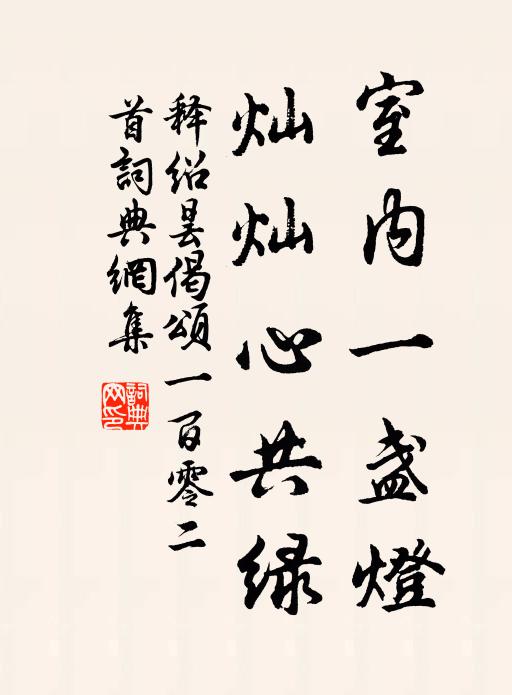 室内一盏燈
灿灿心共绿
释绍昙偈頌一百零二
首詞典網集
詞典网印